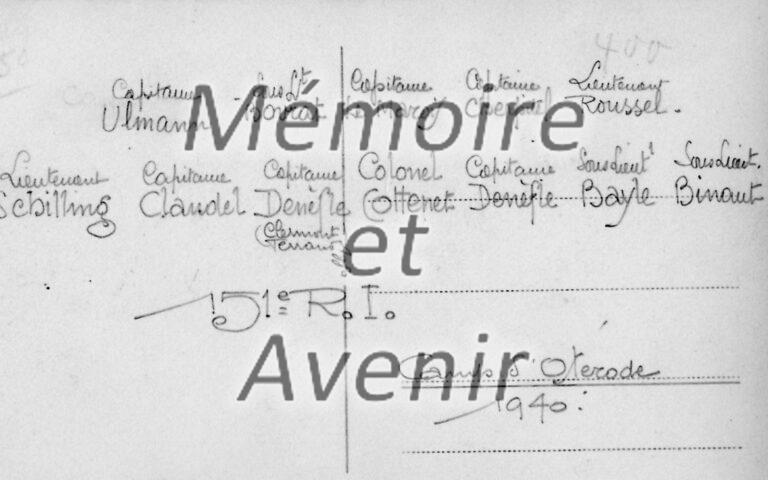 400
Capitaine Sous Lt Capitaine Capitaine Lieutenant
Ulmann Roussel.
Lieutenant Capitaine Capitaine Colonel Capitaine Sous Lieut Sous Lieut.
Schilling Claudel Denèfle Cottenet Denèfle Bayle Binaut
(Clermont
Ferrand)
151e R.I.
Camp d'Oterode
1940.
Mémoire
et
Avenir